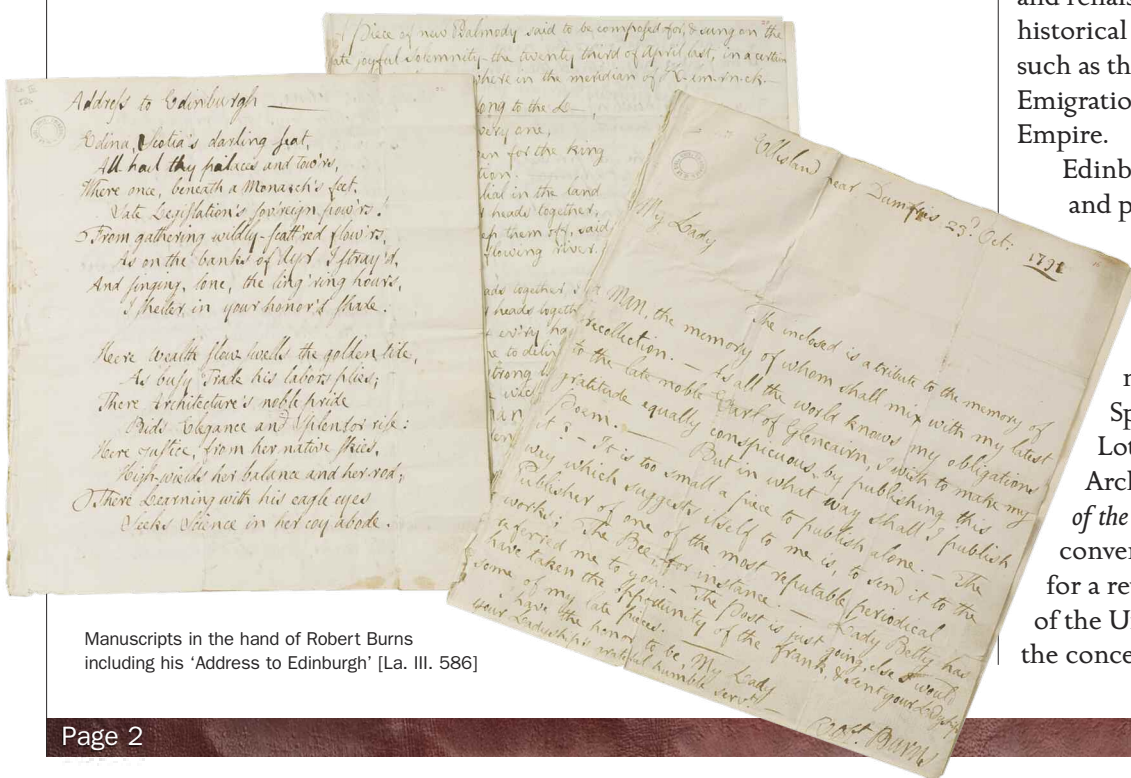 Address to Edinburgh
Edina, Scotia's darling seat,
All hail thy palaces and tow'rs,
Where once, beneath a Monarch's feet,
Sate Legislation's sov'reign pow'rs!
From gathering wildly-scatt'red flow'rs,
As on the banks of Ayr I stray'd,
And singing, lone, the ling'ring hours,
I shelter in your honor's shade.
Here Wealth flow swells the golden tide,
As busy Trade his labors plies;
There Architecture's noble pride
Bids Elegance and Splendor rise:
Here Justice, from her native skies,
High-wields her balance and her rod;
There Learning with his eagle eyes
Seeks Science in her coy abode.
Piece of new Psalmody said to be composed for, & sung on the
late joyful Solemnity - the twenty third of April last, in a certain
where in the meridian of
ong to the L
very one,
for the King
tion.
in the land
heads together,
them off, said
flowing river.
heads together
Ellisland near Dumfries 23d Oct:
1791
My Lady
The inclosed is a tribute to the memory of
a Man, the memory of whom shall mix with my latest
recollection. — As all the world knows my obligations
to the late noble Earl of Glencairn, I wish to make my
gratitude equally conspicuous, by publishing this
Poem. — But in what way shall I publish
it? — It is too small a piece to publish alone. — The
way which suggests itself to me is, to send it to the
Publisher of one of the most reputable periodical
works; The Bee, for instance. — Lady Betty has
referred me to you. — The Post is just going, else I would
have taken the opportunity of the frank, & sent your Ladyship
some of my late pieces. —
I have the honor to be, My Lady
your Ladyship's grateful humble servt
Robt Burns
Manuscripts in the hand of Robert Burns
including his 'Address to Edinburgh' [La. III. 586]
Page 2
historical
such as th
Emigratio
Empire.
Edinb
and p
Sp
Lot
Arch
of the
conver
for a re
of the U
the conce